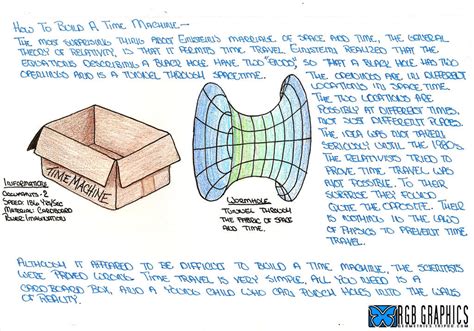 How To Build A Time Machine—
The most surprising thing about Einstein's marriage of space and time, the general
theory of relativity, is that it permits time travel. Einstein realized that the
equations describing a black hole have two "ends", so that a black hole has two
openings and is a tunnel through spacetime.
The openings are in different
locations in space time.
The two locations are
possibly at different times,
not just different places.
The idea was not taken
seriously until the 1980s
The relativists tried to
prove time travel was
not possible. To their
surprise they found
quite the opposite. Their
is nothing in the laws
of physics to prevent time
travel.
TIME MACHINE
Information:
Occupants: 2
Speed: 186 yr/sec
Material: Cardboard
Power: Imagination
Wormhole
Tunnel through
the fabric of space
and time.
Although it appeared to be difficult to build a time machine, the scientists
were proved wrong. Time travel is very simple, all you need is a
cardboard box, and a young child who can punch holes into the walls
of reality.
RGB GRAPHICS
GEOMETRIES.TRIPOD.COM